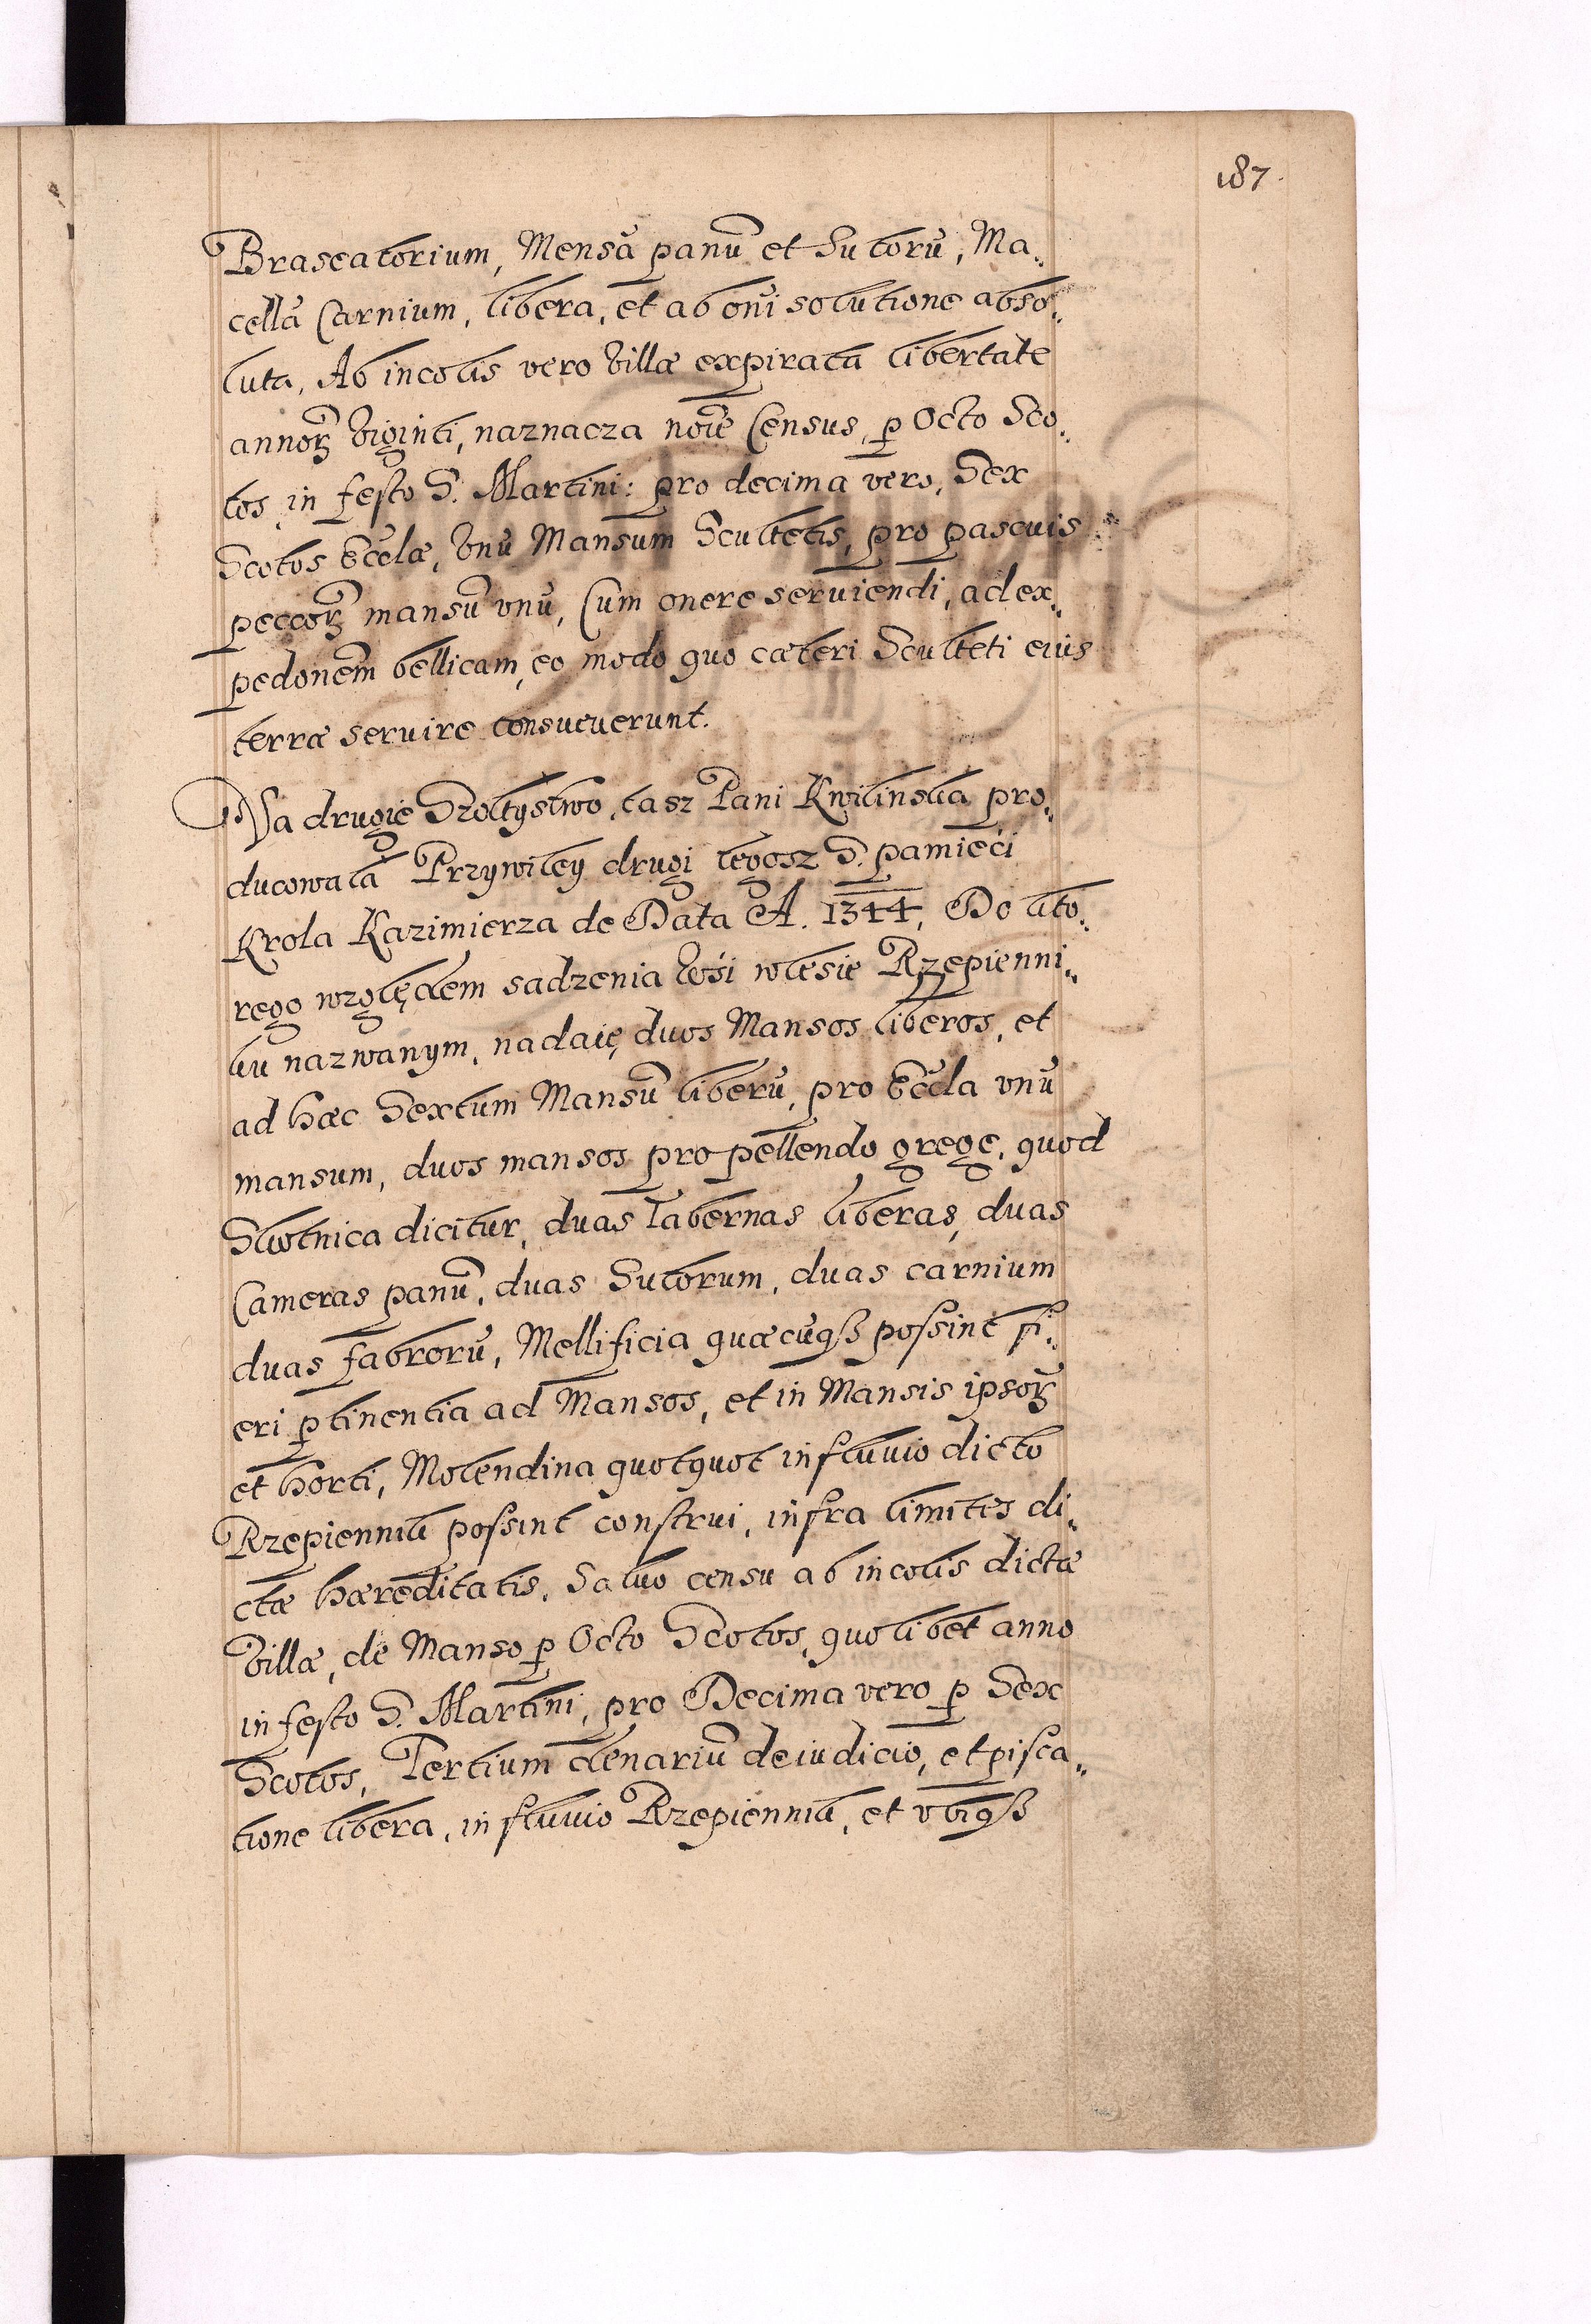 187.
Braseatorium, Mensā panū et Sutorū, Ma„
cellā Carnium, libera, et ab oni solutione abso„
luta, Ab incolis vero villæ expirata libertate
annorꝝ viginti, naznacza noīe Census, ꝑ Octo Sco„
tos in festo S. Martini: pro decima vero, Sex
Scotos Ecclæ, vnū Mansum Scultetis, pro pascuis
peccorꝝ mansū vnū, Cum onere seruiendi, ad ex„
pedonem bellicam, eo modo quo cæteri Sculteti eius
terræ seruire consueuerunt.
Na drugie Szołtystwo, tasz Pani Kwilinska pro„
ducowała Przywiley drugi tegosz S. pamięci
Krola Kazimierza de Data A. 1344, Do kto„
rego względem sadzenia wśi w lesie Rzepienni„
ku nazwanym, nadaię duos Mansos liberos, et
ad hæc Sextum Mansū liberū, pro Eccla vnū
mansum, duos mansos pro pellendo grege, quod
Skotnica dicitur, duas Tabernas liberas, duas
Cameras panū, duas Sutorum, duas carnium
duas fabrorū, Mellificia quæcūqȝ possint fi„
eri ꝑtinentia ad Mansos, et in Mansis ipsorꝝ
et horti, Molendina quotquot in fluuio dicto
Rzepiennik possint construi, infra limites di„
ctæ hæreditatis, Saluo censu ab incolis dictæ
villæ, de Manso ꝑ Octo Scotos, quolibet anno
in festo S. Martini, pro Decima vero ꝑ Sex
Scotos, Tertium denariū de iudicio, et pisca„
tione libera, in fluuio Rzepiennik, et vbiqȝ